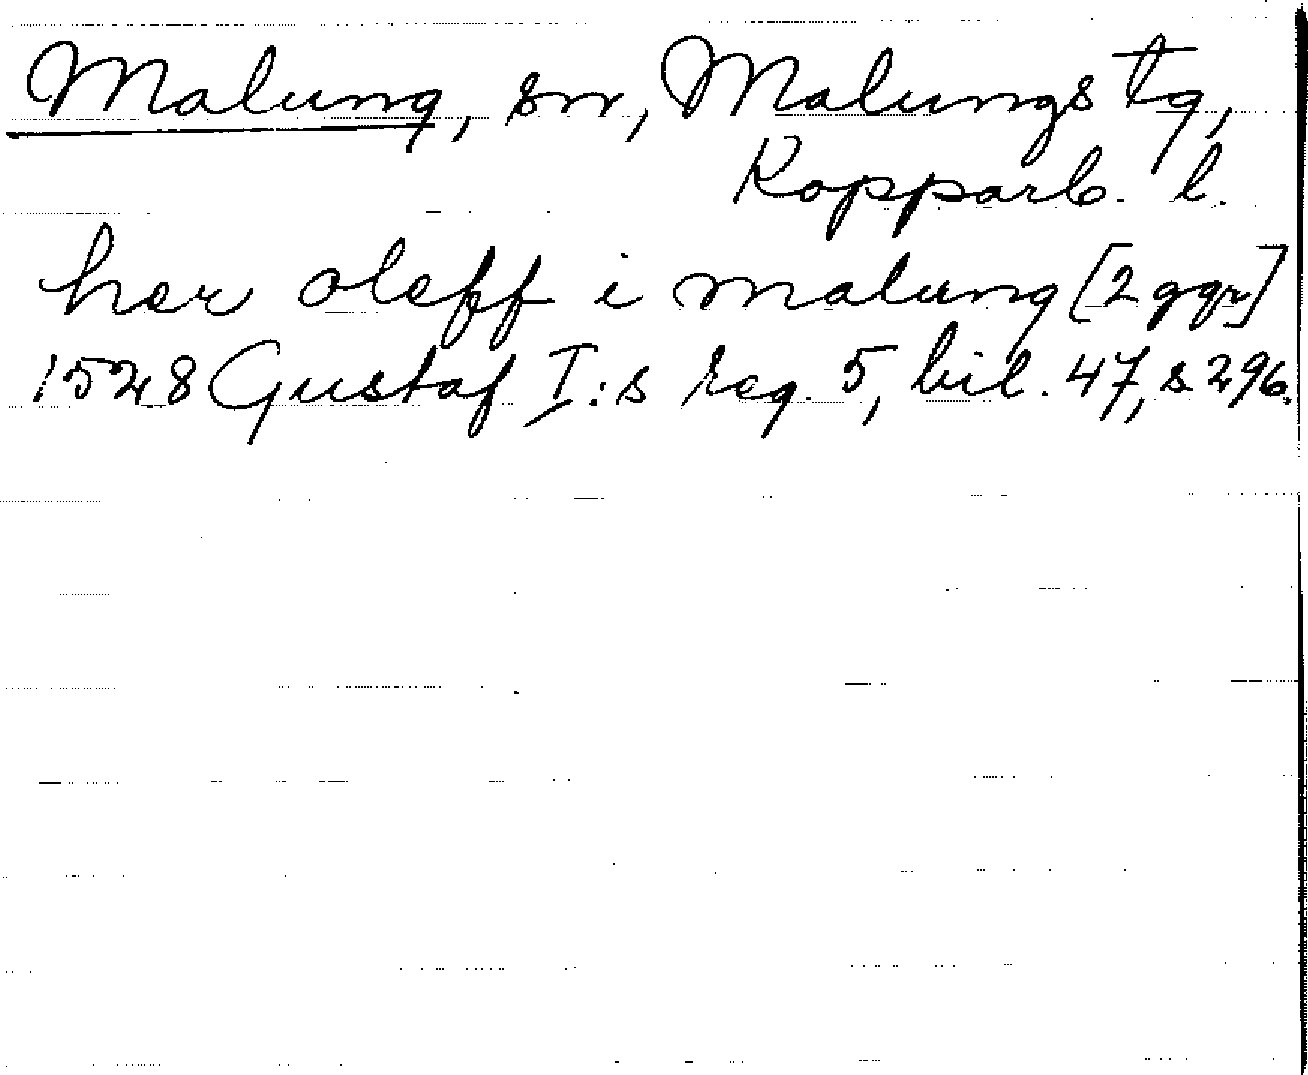 Malung, sn, Malungs tg,
Kopparb. l.
her oleff i malung [2 ggr]
1528 Gustaf I:s reg. 5, bil. 47, s 296.